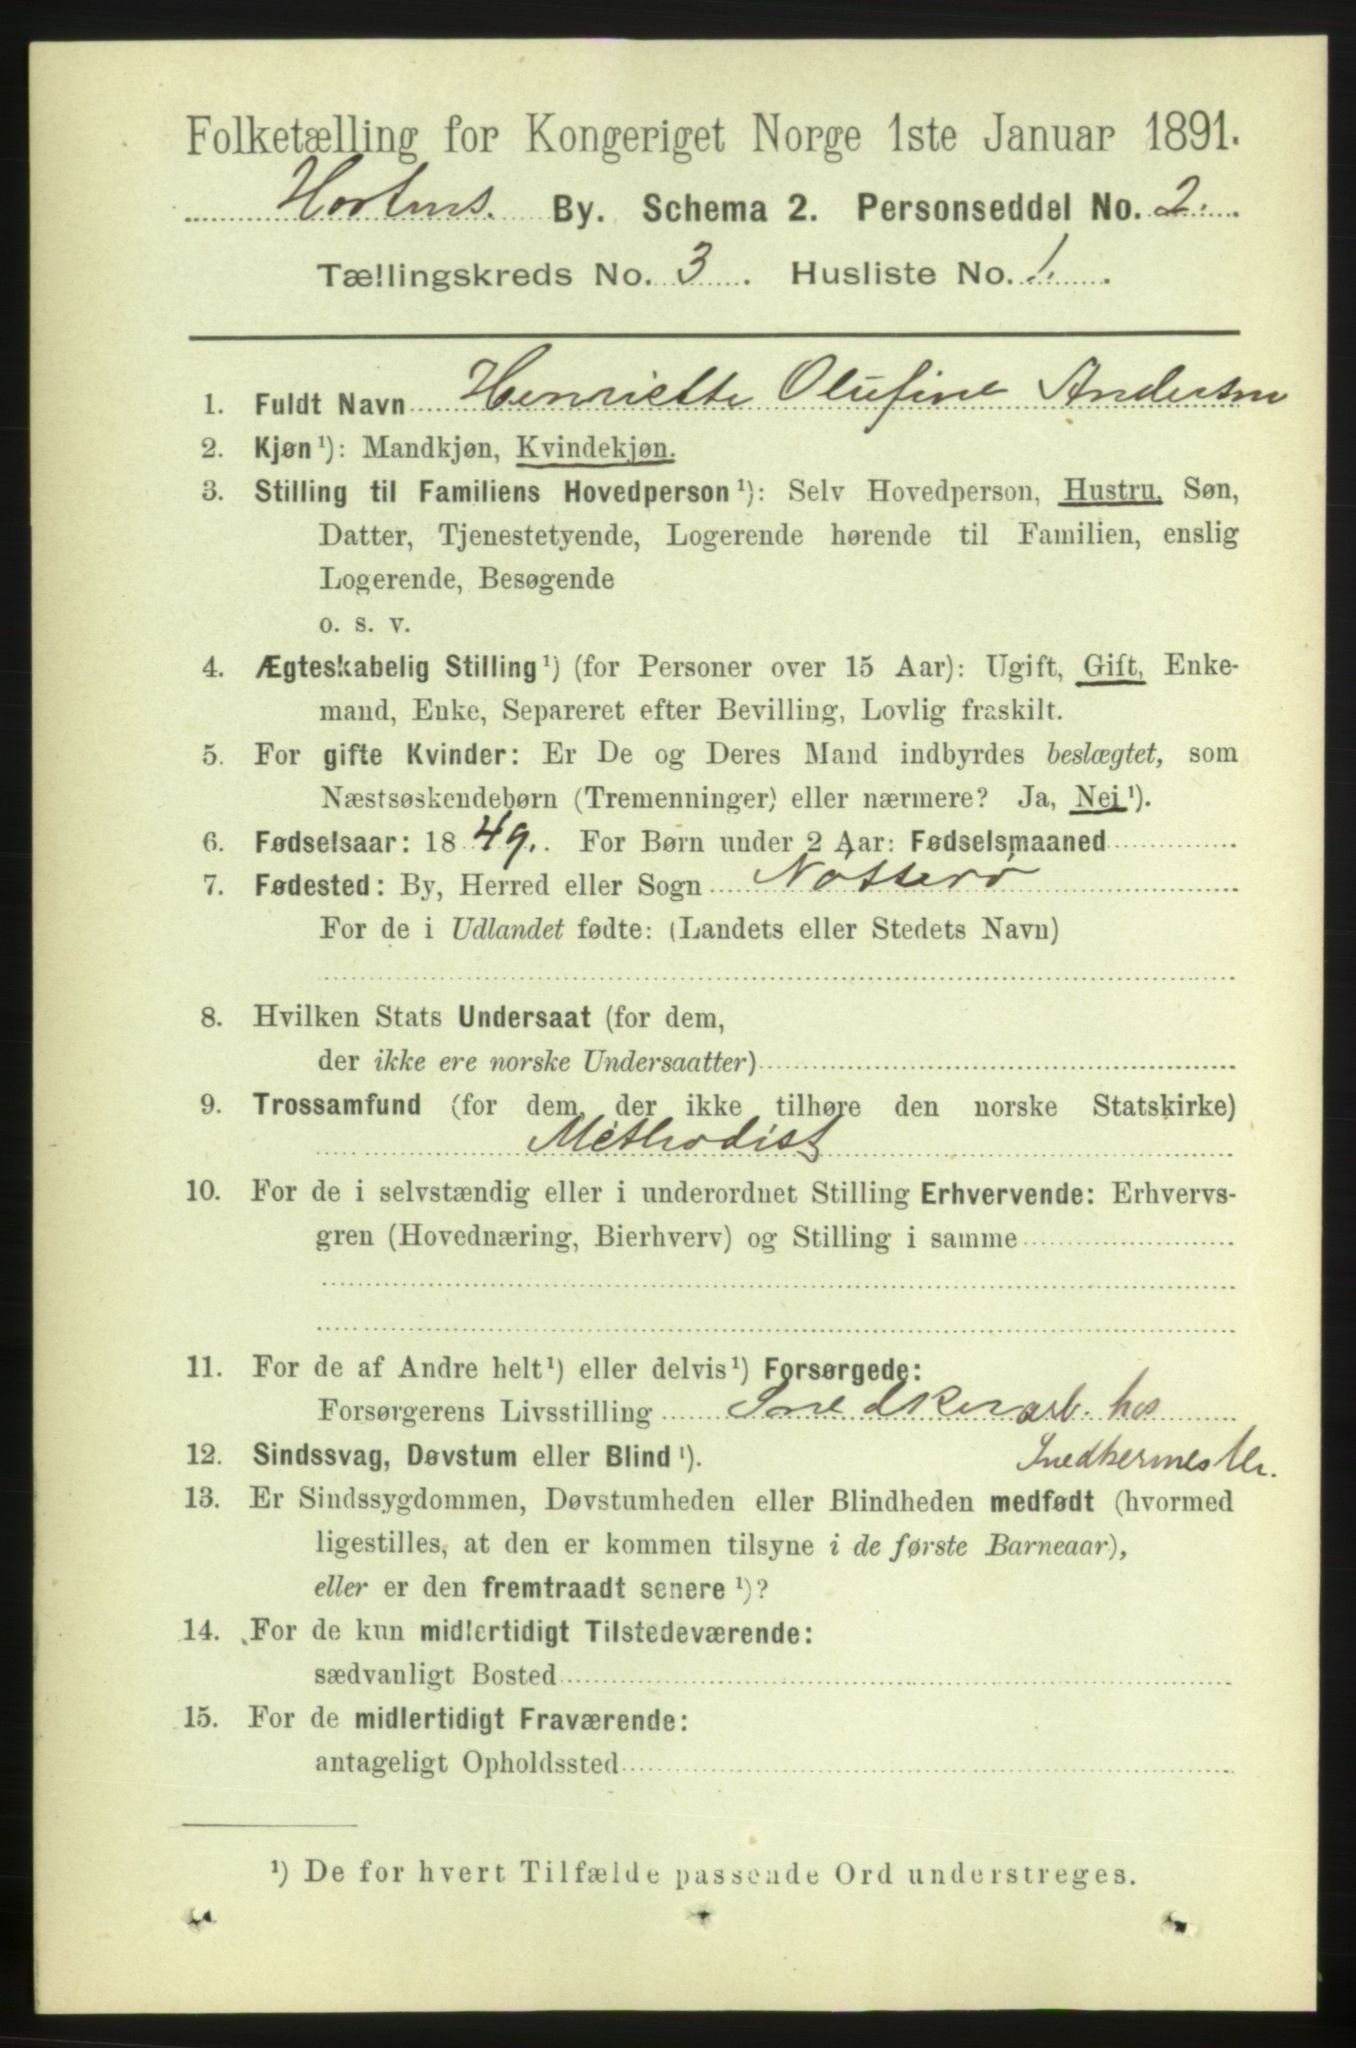 Folketælling for Kongeriget Norge 1ste Januar 1891.
Hortens. By. Schema 2. Personseddel No. 2.
Tællingskreds No. 3. Husliste No. 1.
1. Fuldt Navn Henriette Olufine Andersen
2. Kjøn ¹): Mandkjøn, Kvindekjøn.
3. Stilling til Familiens Hovedperson ¹): Selv Hovedperson, Hustru, Søn,
Datter, Tjenestetyende, Logerende hørende til Familien, enslig
Logerende, Besøgende
o. s. v.
4. Ægteskabelig Stilling ¹) (for Personer over 15 Aar): Ugift, Gift, Enke-
mand, Enke, Separeret efter Bevilling, Lovlig fraskilt.
5. For gifte Kvinder: Er De og Deres Mand indbyrdes beslægtet, som
Næstsøskendebørn (Tremenninger) eller nærmere? Ja, Nei ¹).
6. Fødselsaar: 1849. For Børn under 2 Aar: Fødselsmaaned
7. Fødested: By, Herred eller Sogn Nøtterø
For de i Udlandet fødte: (Landets eller Stedets Navn)
8. Hvilken Stats Undersaat (for dem,
der ikke ere norske Undersaatter)
9. Trossamfund (for dem, der ikke tilhøre den norske Statskirke)
Methodist
10. For de i selvstændig eller i underordnet Stilling Erhvervende: Erhvervs-
gren (Hovednæring, Bierhverv) og Stilling i samme
11. For de af Andre helt ¹) eller delvis ¹) Forsørgede:
Forsørgerens Livsstilling Snedkerarb. hos
Snedkermester.
12. Sindssvag, Døvstum eller Blind ¹).
13. Er Sindssygdommen, Døvstumheden eller Blindheden medfødt (hvormed
ligestilles, at den er kommen tilsyne i de første Barneaar),
eller er den fremtraadt senere ¹)?
14. For de kun midlertidigt Tilstedeværende:
sædvanligt Bosted
15. For de midlertidigt Fraværende:
antageligt Opholdssted
¹) De for hvert Tilfælde passende Ord understreges.